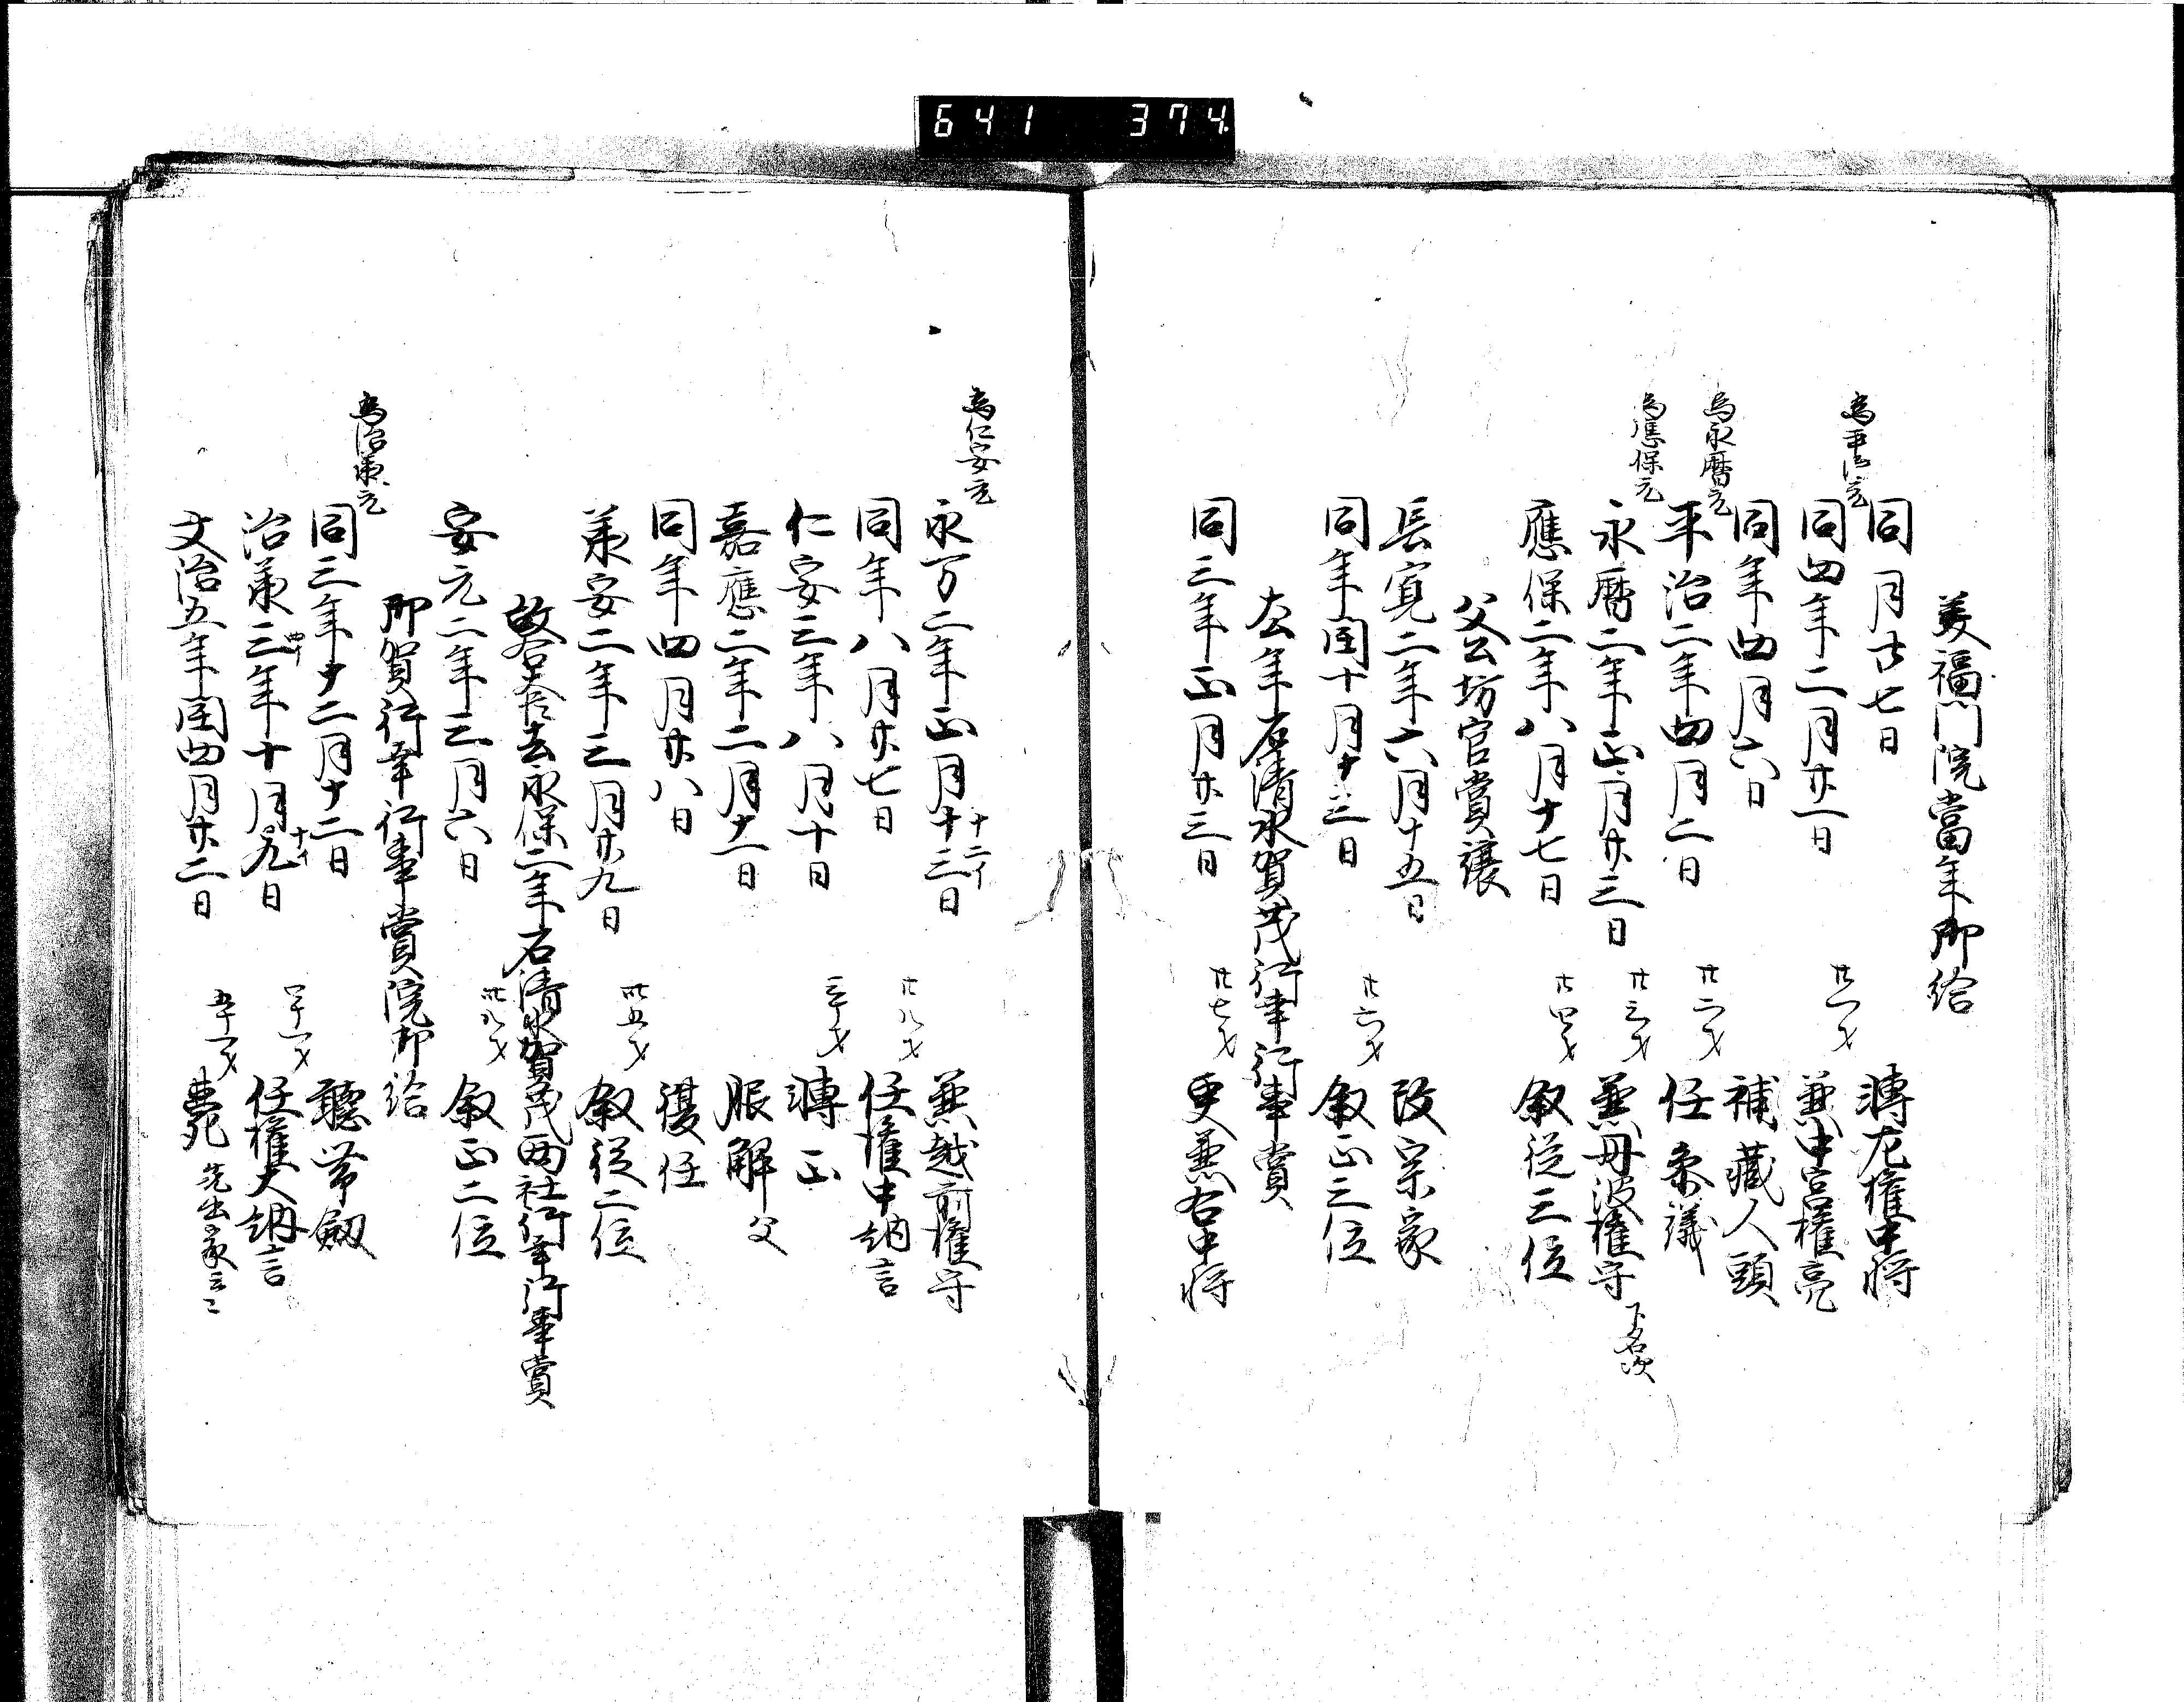 641 374
美福門院當年御給
同月廿七日 轉左權中將
為平治元
同四年二月廿一日 廿一才 兼中宮權亮
同年四月六日 補藏人頭
為永暦元
平治二年四月二日 廿二才 任參議
為應保元
永暦二年正月廿三日 廿三才 兼丹波權守 下名次
應保二年八月十七日 廿四才 敘從三位
父公坊官賞讓
長寛二年六月十五日 改宗家
同年閏十月十三日 廿六才 敘正三位
去年石清水賀茂行幸行事賞
同三年正月廿三日 廿七才 更兼右中將
為仁安元
永万二年正月十三日 十二イ 兼越前權守
同年八月廿七日 廿八才 任權中納言
仁安三年八月十日 三十才 轉正
嘉應二年二月十一日 服解父
同年四月廿八日 復任
承安二年三月廿九日 卅五才 敘從二位
故 去永保二年石清水賀茂兩社行幸行事賞
安元二年三月六日 卅八才 敘正二位
御賀行幸行事賞院御給
為治承元
同三年十二月十二日 聽帶劔
治承三年十月九日 四イ 十イ 四十一才 任權大納言
文治五年閏四月廿二日 五十一才 薨 先出家云々